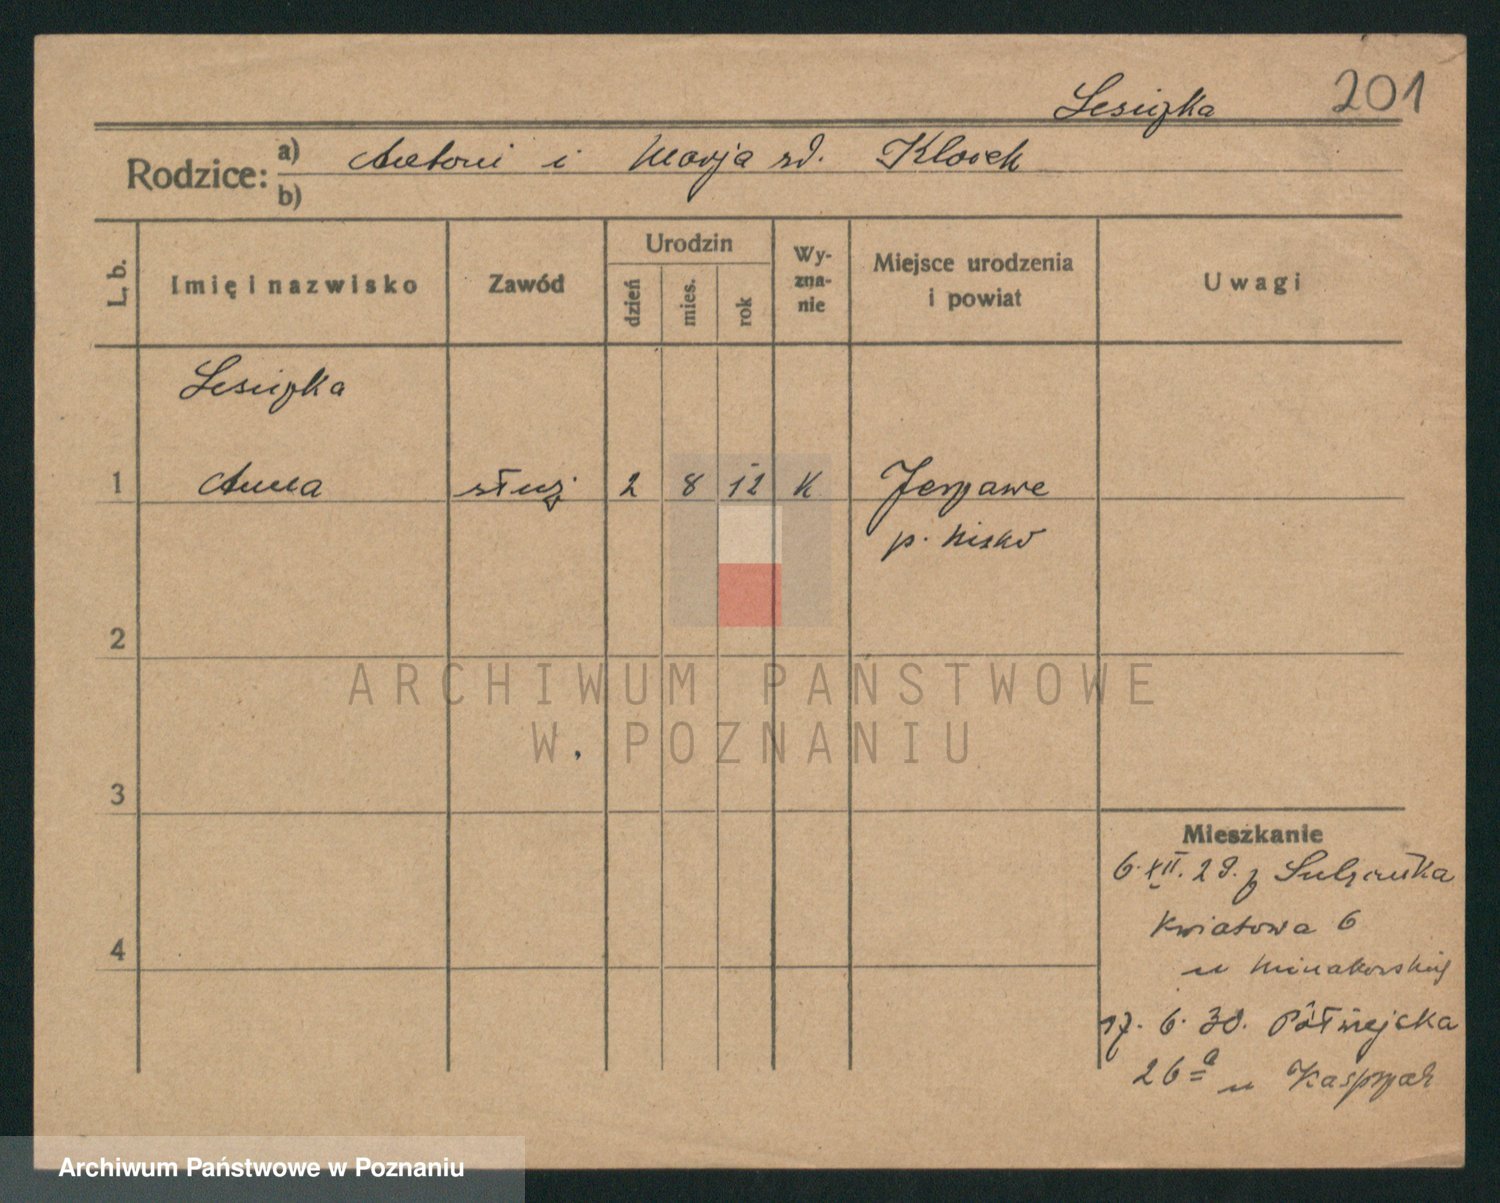 201
Lesiczka
Rodzice: a) Antoni i Marja rd. Klocek
b)
L. b.
Imię i nazwisko
Zawód
Urodzin
dzień
mies.
rok
Wy-
zna-
nie
Miejsce urodzenia
i powiat
Uwagi
Lesiczka
1 Anna służ 2 8 12 K
p. Nisko
2
3
4
ARCHIWUM PAŃSTWOWE
W POZNANIU
Mieszkanie
6. XII. 29. z
Kwiatowa 6
u
17. 6. 30. Półwiejska
26a u Kasprzak
Archiwum Państwowe w Poznaniu